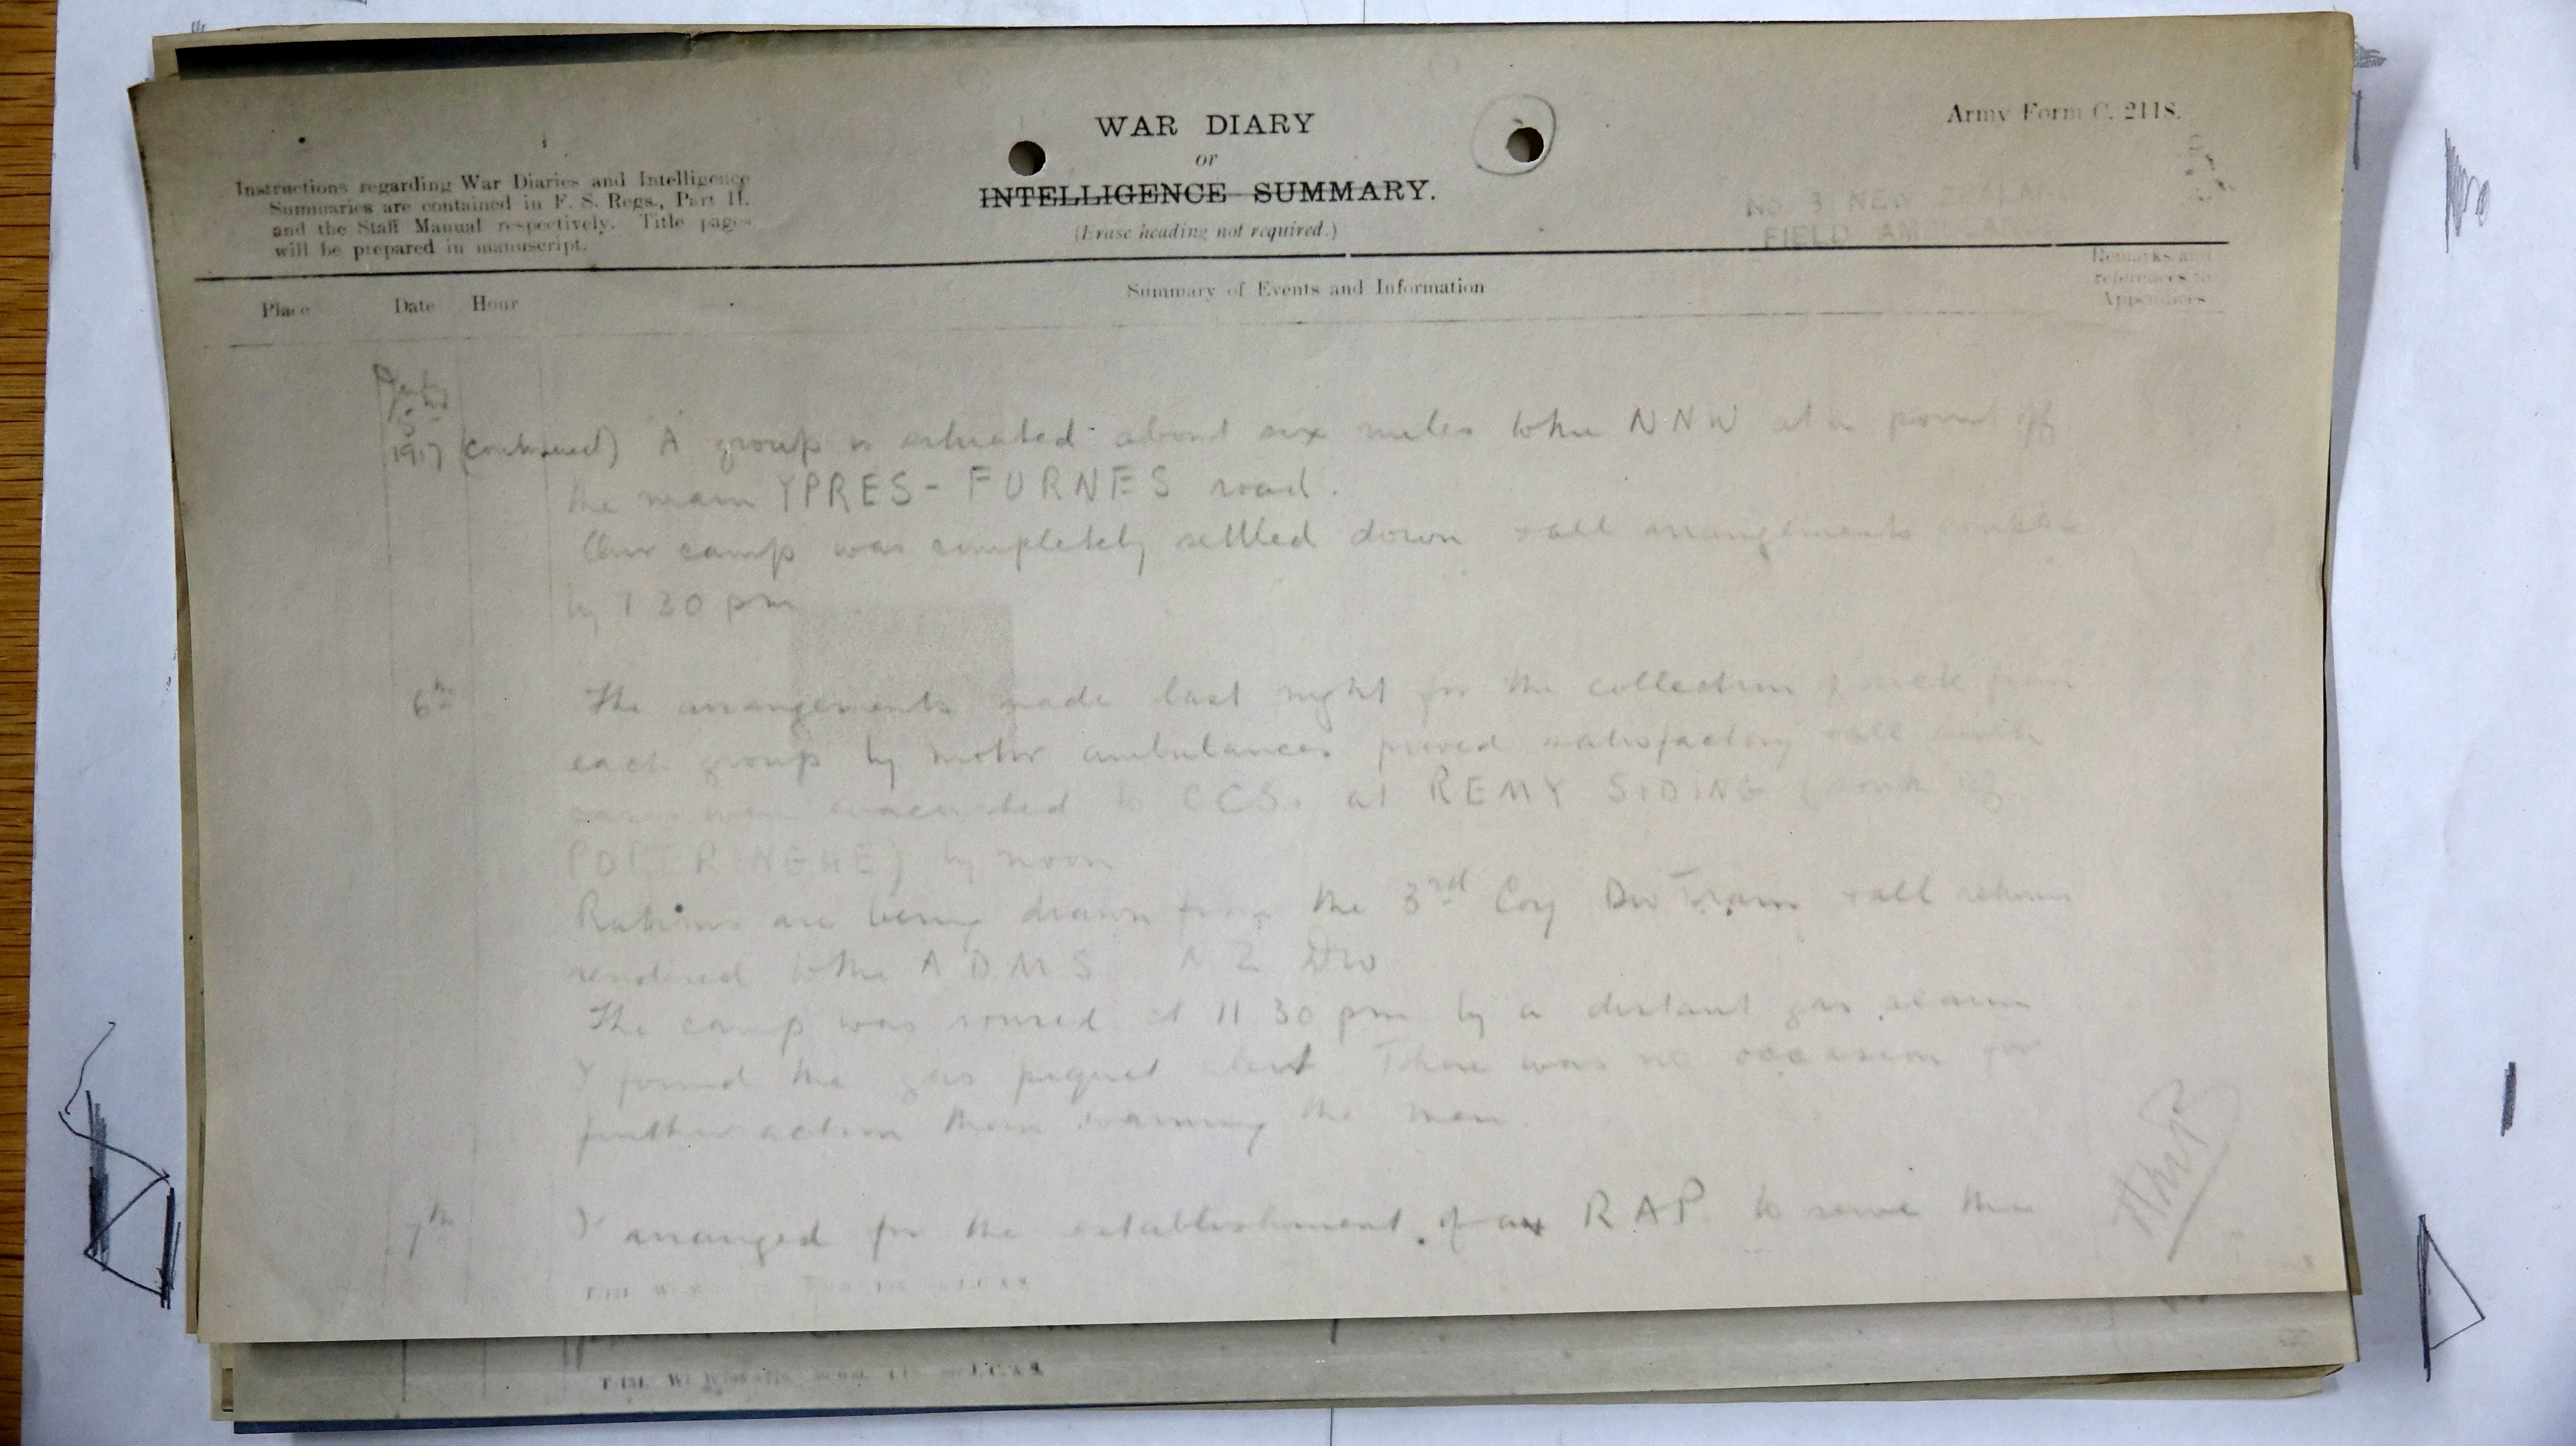 WAR DIARY
or
INTELLIGENCE SUMMARY.
(Erase heading not required.)
Army Form C. 2118.
Instructions regarding War Diaries and Intelligence
Summaries are contained in F. S. Regs., Part II.
and the Staff Manual respectively. Title pages
will be prepared in manuscript.
No 3 NEW
FIELD
Place Date Hour
Summary of Events and Information
Remarks and
references to
Appendices
5
1917 (continued) A group is situated about six miles to the NNW at a point off
the main YPRES - FURNES road.
Our camp was completely settled down & all arrangements
by 1 30 pm
6th The arrangements made last night for the collection of sick from
each group by motor ambulances proved satisfactory & all
were evacuated to CCSs at REMY SIDING (
POPERINGHE) by noon
Rations are being drawn from the 3rd Coy Div Train & all returns
rendered to the ADMS NZ Div
The camp was roused at 11 30 pm by a distant gas alarm
I found the gas piquet alert There was no occasion for
further action than warning the men.
7th I arranged for the establishment of an RAP to serve the